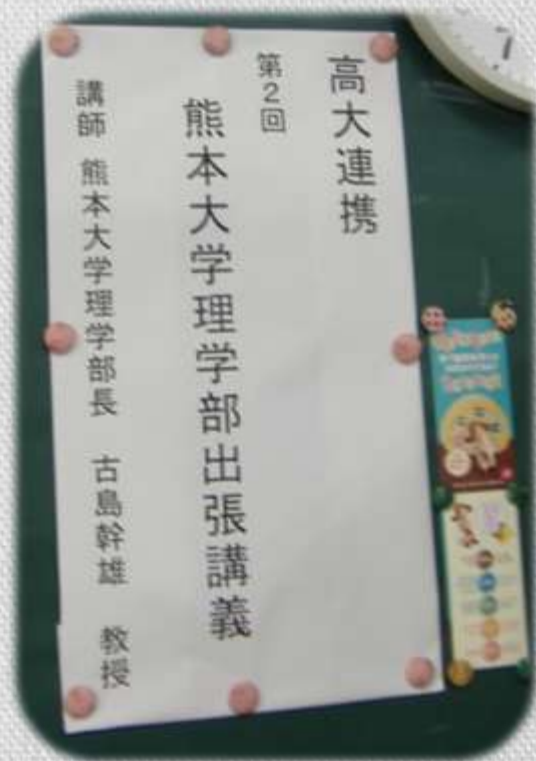 高大連携
第2回
熊本大学理学部出張講義
講師 熊本大学理学部長 古島幹雄 教授